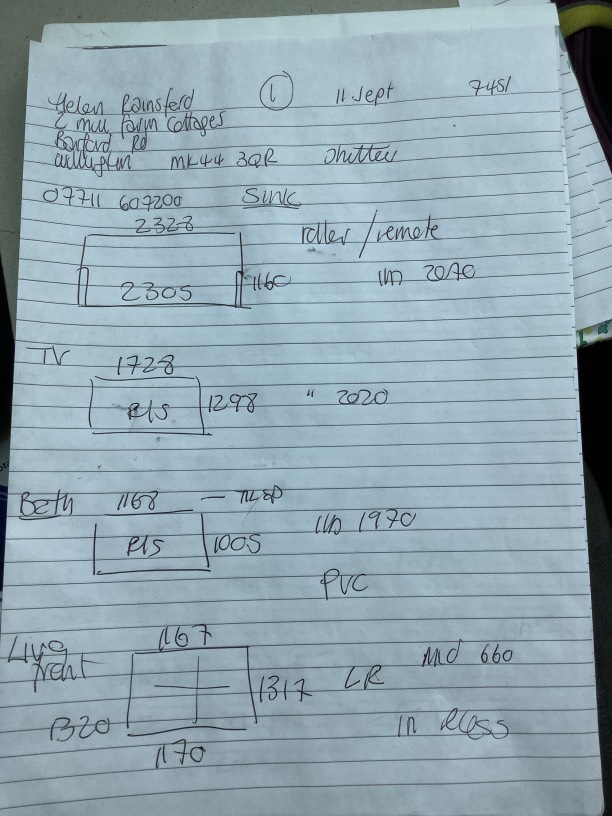 Helen Rainsford ① 11 Sept 7451
2 mill farm Cottages
Barford Rd
MK44 3QR Shutter
07711 607200 Sink
2328 roller/remote
2305 1160 1in 2070
TV
1728
R/S 1298 " 2020
Bath 1168 — TILED
R/S 1005 1in 1970
PVC
Living 1167
front 1317 LR Mid 660
1320 in recess
1170